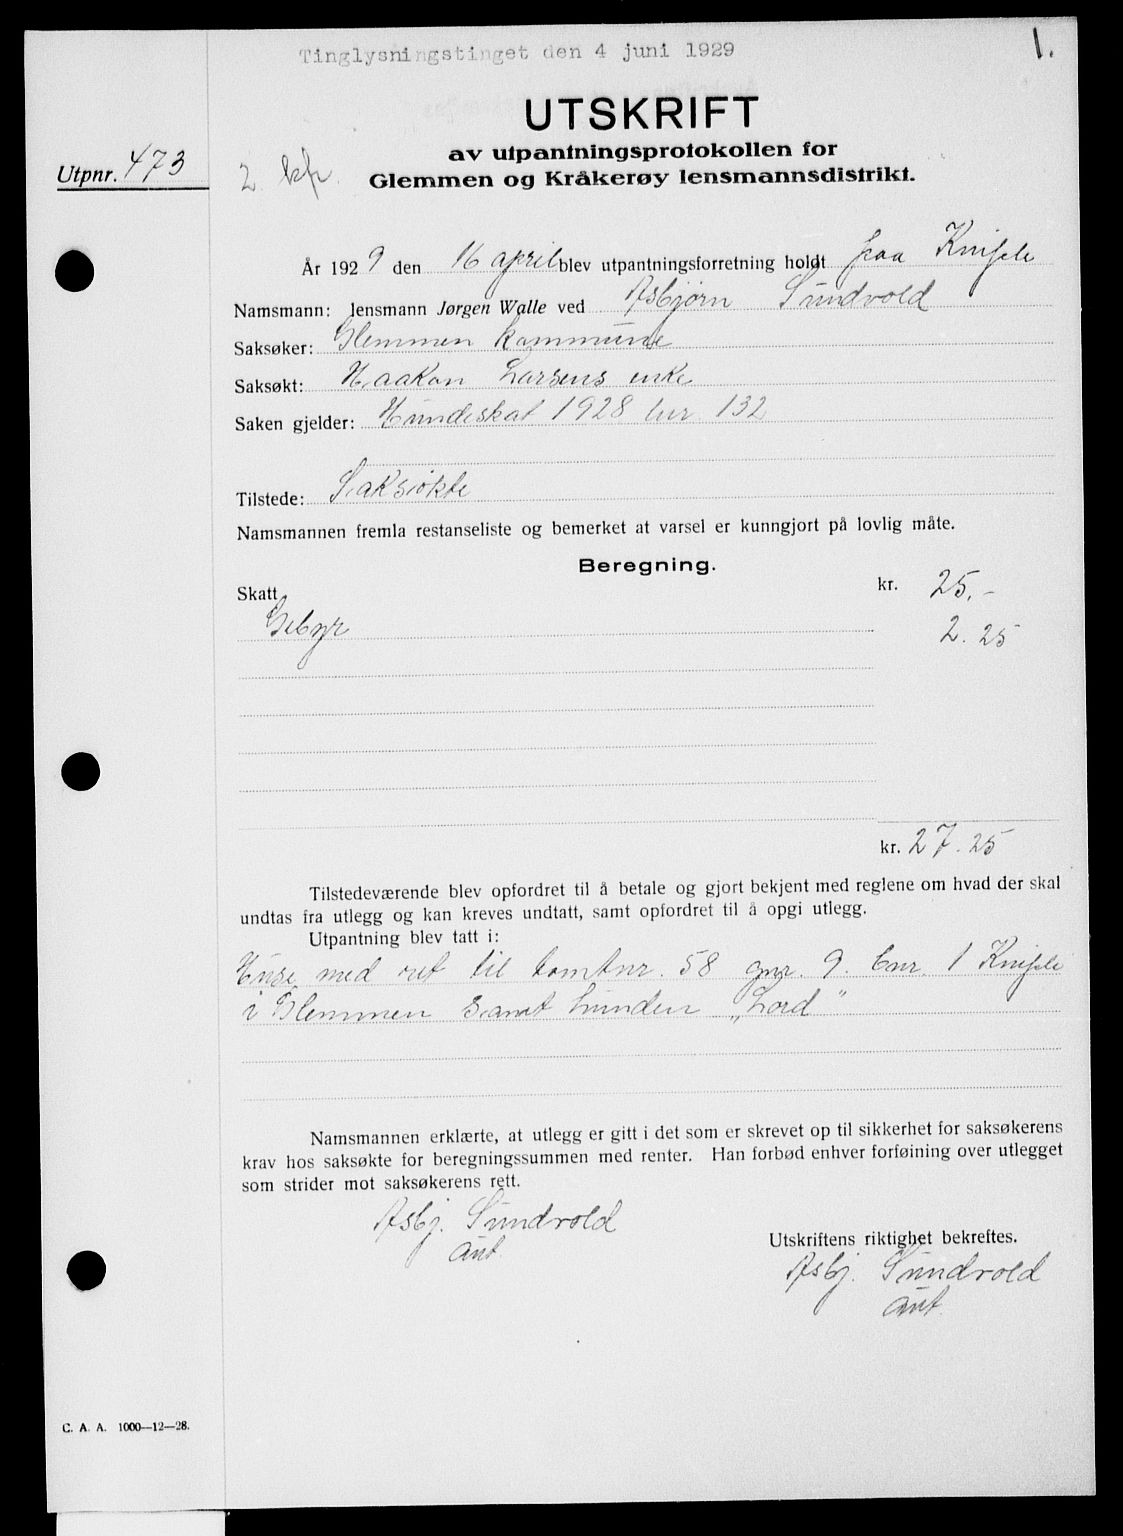 Tinglysningstinget den 4 juni 1929
1.
UTSKRIFT
av utpantningsprotokollen for
Glemmen og Kråkerøy lensmannsdistrikt.
Utpnr. 473
2
År 1929 den 16 april blev utpantningsforretning holdt paa Knipple
Namsmann: lensmann Jørgen Walle ved Asbjørn Sundvold
Saksøker: Glemmen kommune
Saksøkt: Haakon Larsens enke
Saken gjelder: Hundeskat 1928 lnr. 132
Tilstede: Saksøkte
Namsmannen fremla restanseliste og bemerket at varsel er kunngjort på lovlig måte.
Beregning.
Skatt kr. 25.-
Gebyr 2.25
kr. 27.25
Tilstedeværende blev opfordret til å betale og gjort bekjent med reglene om hvad der skal
undtas fra utlegg og kan kreves undtatt, samt opfordret til å opgi utlegg.
Utpantning blev tatt i:
Huse med ret til tomtnr. 58 gnr. 9. bnr. 1 Knipple
i Glemmen samt hunden „Lord"
Namsmannen erklærte, at utlegg er gitt i det som er skrevet op til sikkerhet for saksøkerens
krav hos saksøkte for beregningssummen med renter. Han forbød enhver forføining over utlegget
som strider mot saksøkerens rett.
Asbj. Sundvold
aut.
Utskriftens riktighet bekreftes.
Asbj. Sundvold
aut.
C. A. A. 1000—12—28.